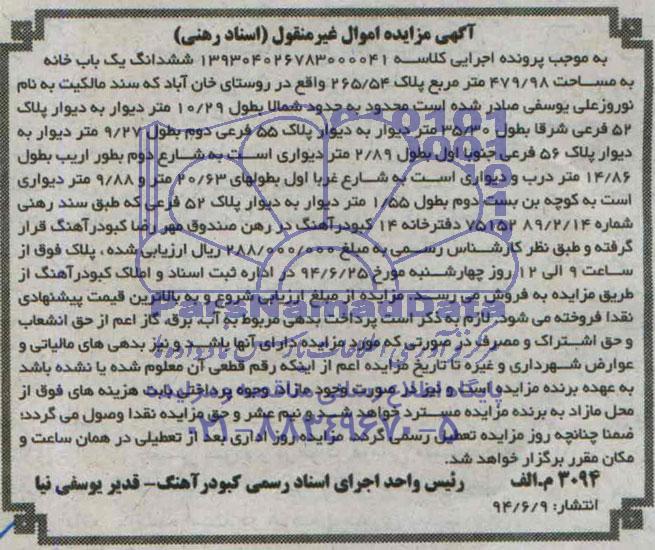 آگهی مزایده اموال غیرمنقول (اسناد رهنی)
به موجب پرونده اجرایی کلاسه ۱۳۹۳۰۴۰۲۶۷۸۳۰۰۰۰۴۱ ششدانگ یک باب خانه
به مساحت ۴۷۹/۹۸ متر مربع پلاک ۲۶۵/۵۴ واقع در روستای خان آباد که سند مالکیت به نام
نوروزعلی یوسفی صادر شده است محدود به حدود شمالا بطول ۱۰/۲۹ متر دیوار به دیوار پلاک
۵۲ فرعی شرقا بطول ۳۵/۳۰ متر دیوار به دیوار پلاک ۵۵ فرعی دوم بطول ۹/۲۷ متر دیوار به
دیوار پلاک ۵۶ فرعی جنوبا اول بطول ۲/۸۹ متر دیواری است به شارع دوم بطور اریب بطول
۱۴/۸۶ متر درب و دیواری است به شارع غربا اول بطولهای ۲۰/۶۳ متر و ۹/۸۸ متر دیواری
است به کوچه بن بست دوم بطول ۱/۵۵ متر دیوار به دیوار پلاک ۵۲ فرعی که طبق سند رهنی
شماره ۷۵۱۵۲ ۸۹/۲/۱۴ دفترخانه ۱۴ کبودرآهنگ در رهن صندوق مهر رضا کبودرآهنگ قرار
گرفته و طبق نظر کارشناس رسمی به مبلغ ۲۸۸/۰۰۰/۰۰۰ ریال ارزیابی شده، پلاک فوق از
ساعت ۹ الی ۱۲ روز چهارشنبه مورخ ۹۴/۶/۲۵ در اداره ثبت اسناد و املاک کبودرآهنگ از
طریق مزایده به فروش می رسد. مزایده از مبلغ ارزیابی شروع و به بالاترین قیمت پیشنهادی
نقدا فروخته می شود. لازم به ذکر است پرداخت بدهی مربوط به آب، برق، گاز اعم از حق انشعاب
و حق اشتراک و مصرف در صورتی که مورد مزایده دارای آنها باشد و نیز بدهی های مالیاتی و
عوارض شهرداری و غیره تا تاریخ مزایده اعم از اینکه رقم قطعی آن معلوم شده یا نشده باشد
به عهده برنده مزایده است و نیز در صورت وجود مازاد وجوه پرداختی بابت هزینه های فوق از
محل مازاد به برنده مزایده مسترد خواهد شد و نیم عشر و حق مزایده نقدا وصول می گردد؛
ضمنا چنانچه روز مزایده تعطیل رسمی گردد، مزایده روز اداری بعد از تعطیلی در همان ساعت و
مکان مقرر برگزار خواهد شد.
۳۰۹۴ م.الف رئیس واحد اجرای اسناد رسمی کبودرآهنگ- قدیر یوسفی نیا
انتشار: ۹۴/۶/۹
ParsNamadData
پایگاه اطلاع رسانی مناقصه و مزایده
۰۲۱-۸۸۳۴۹۶۷۰-۵